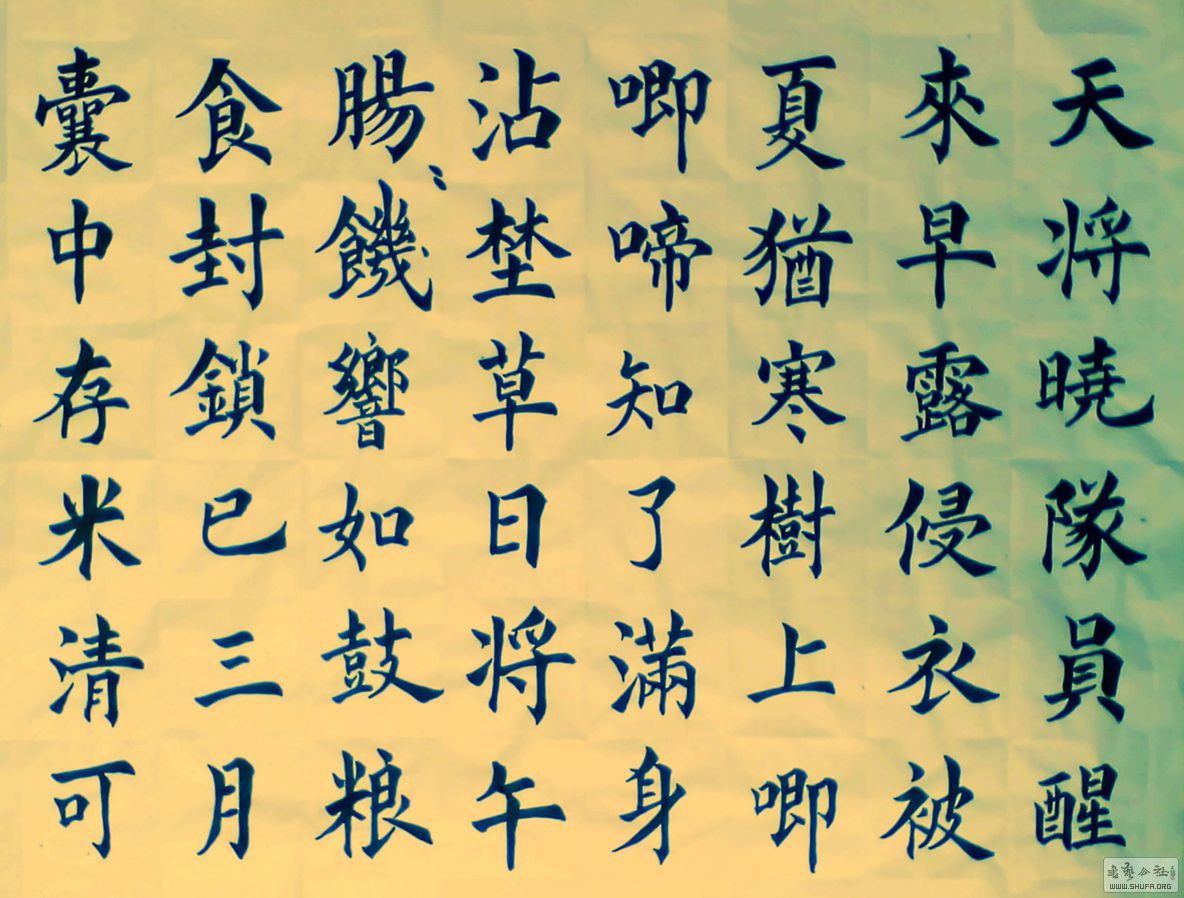 天将曉隊員醒
來早露侵衣被
夏猶寒樹上唧
唧啼知了滿身
沾埜草日将午
腸饑響如鼓粮
食封鎖已三月
囊中存米清可
WWW.SHUFA.ORG